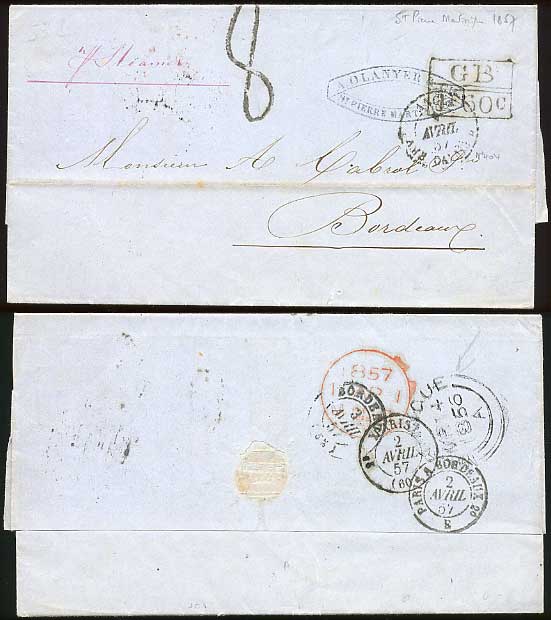 St Pierre Martinique 1857
p/ Steamer
8
A. OLANYER
ST PIERRE MART
GB
1F60c
AVRIL
57
Monsieur A Cabrol
Bordeaux
1857
BORDE
3
AVRIL
57
PARIS
2
AVRIL
57
(60)
QUE
1856
A
PARIS A BORDEAUX 20
2
AVRIL
57
E